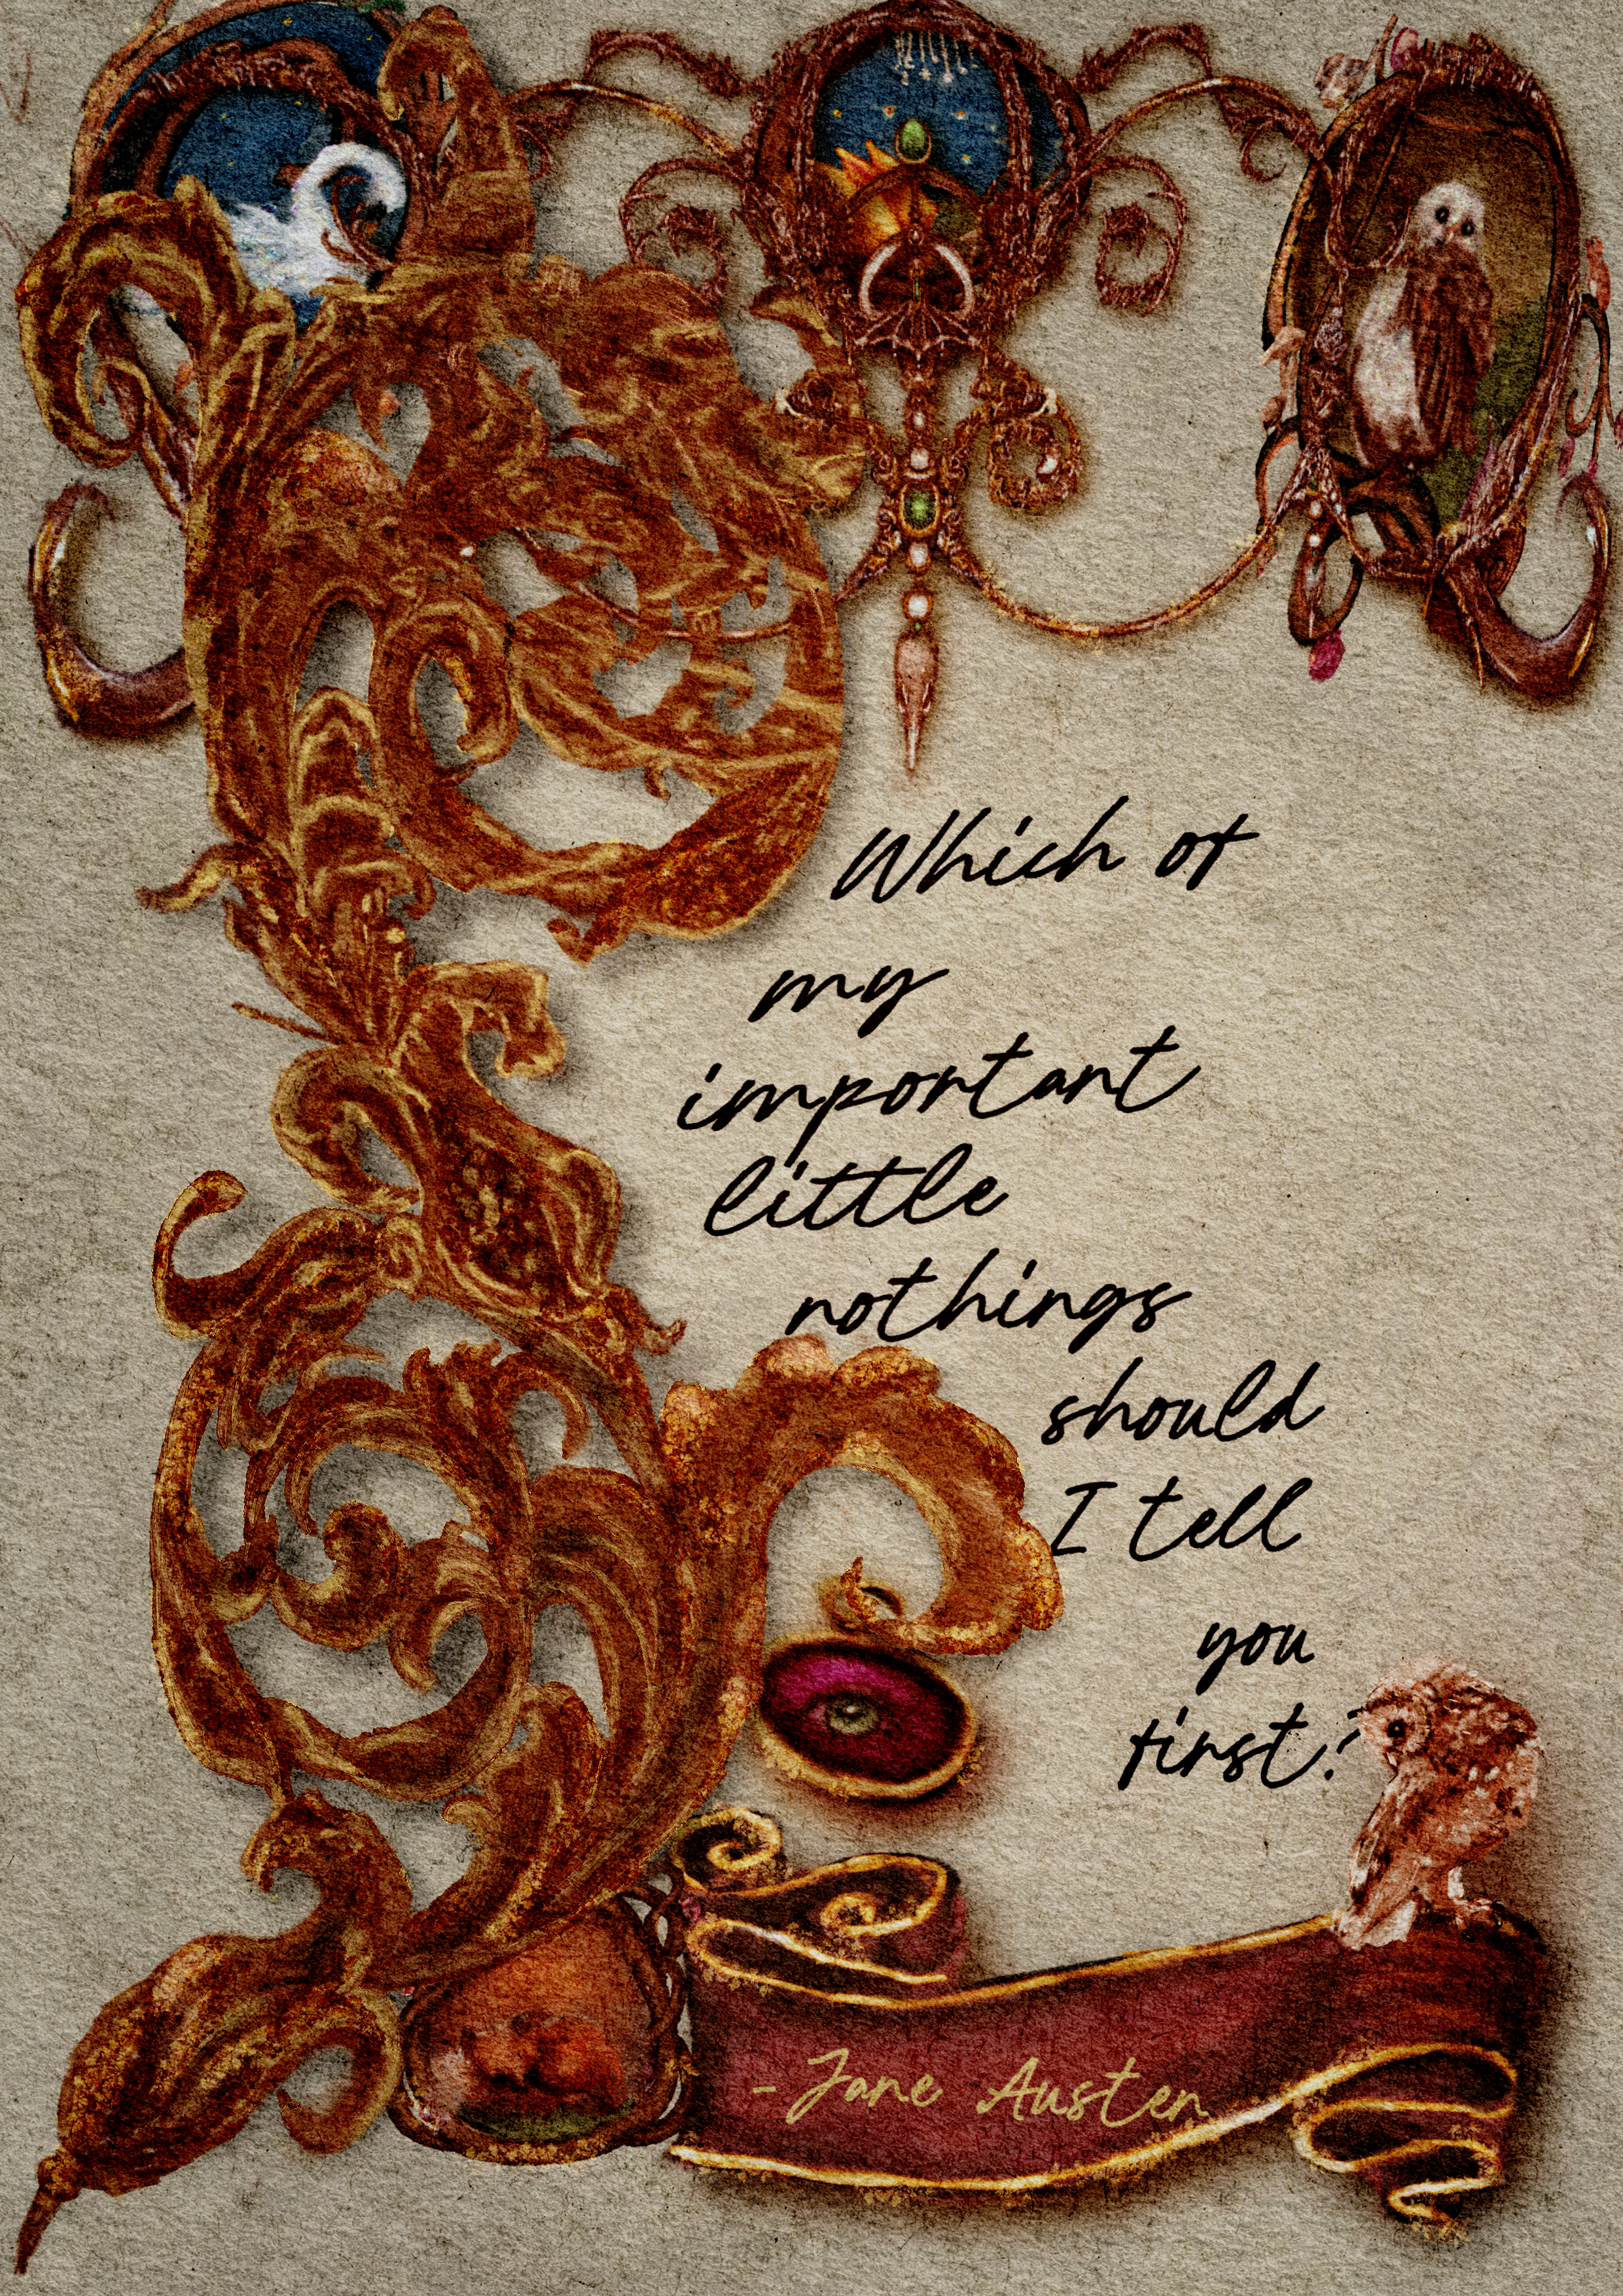 Which of
my
important
little
nothings
should
I tell
you
first?
- Jane Austen